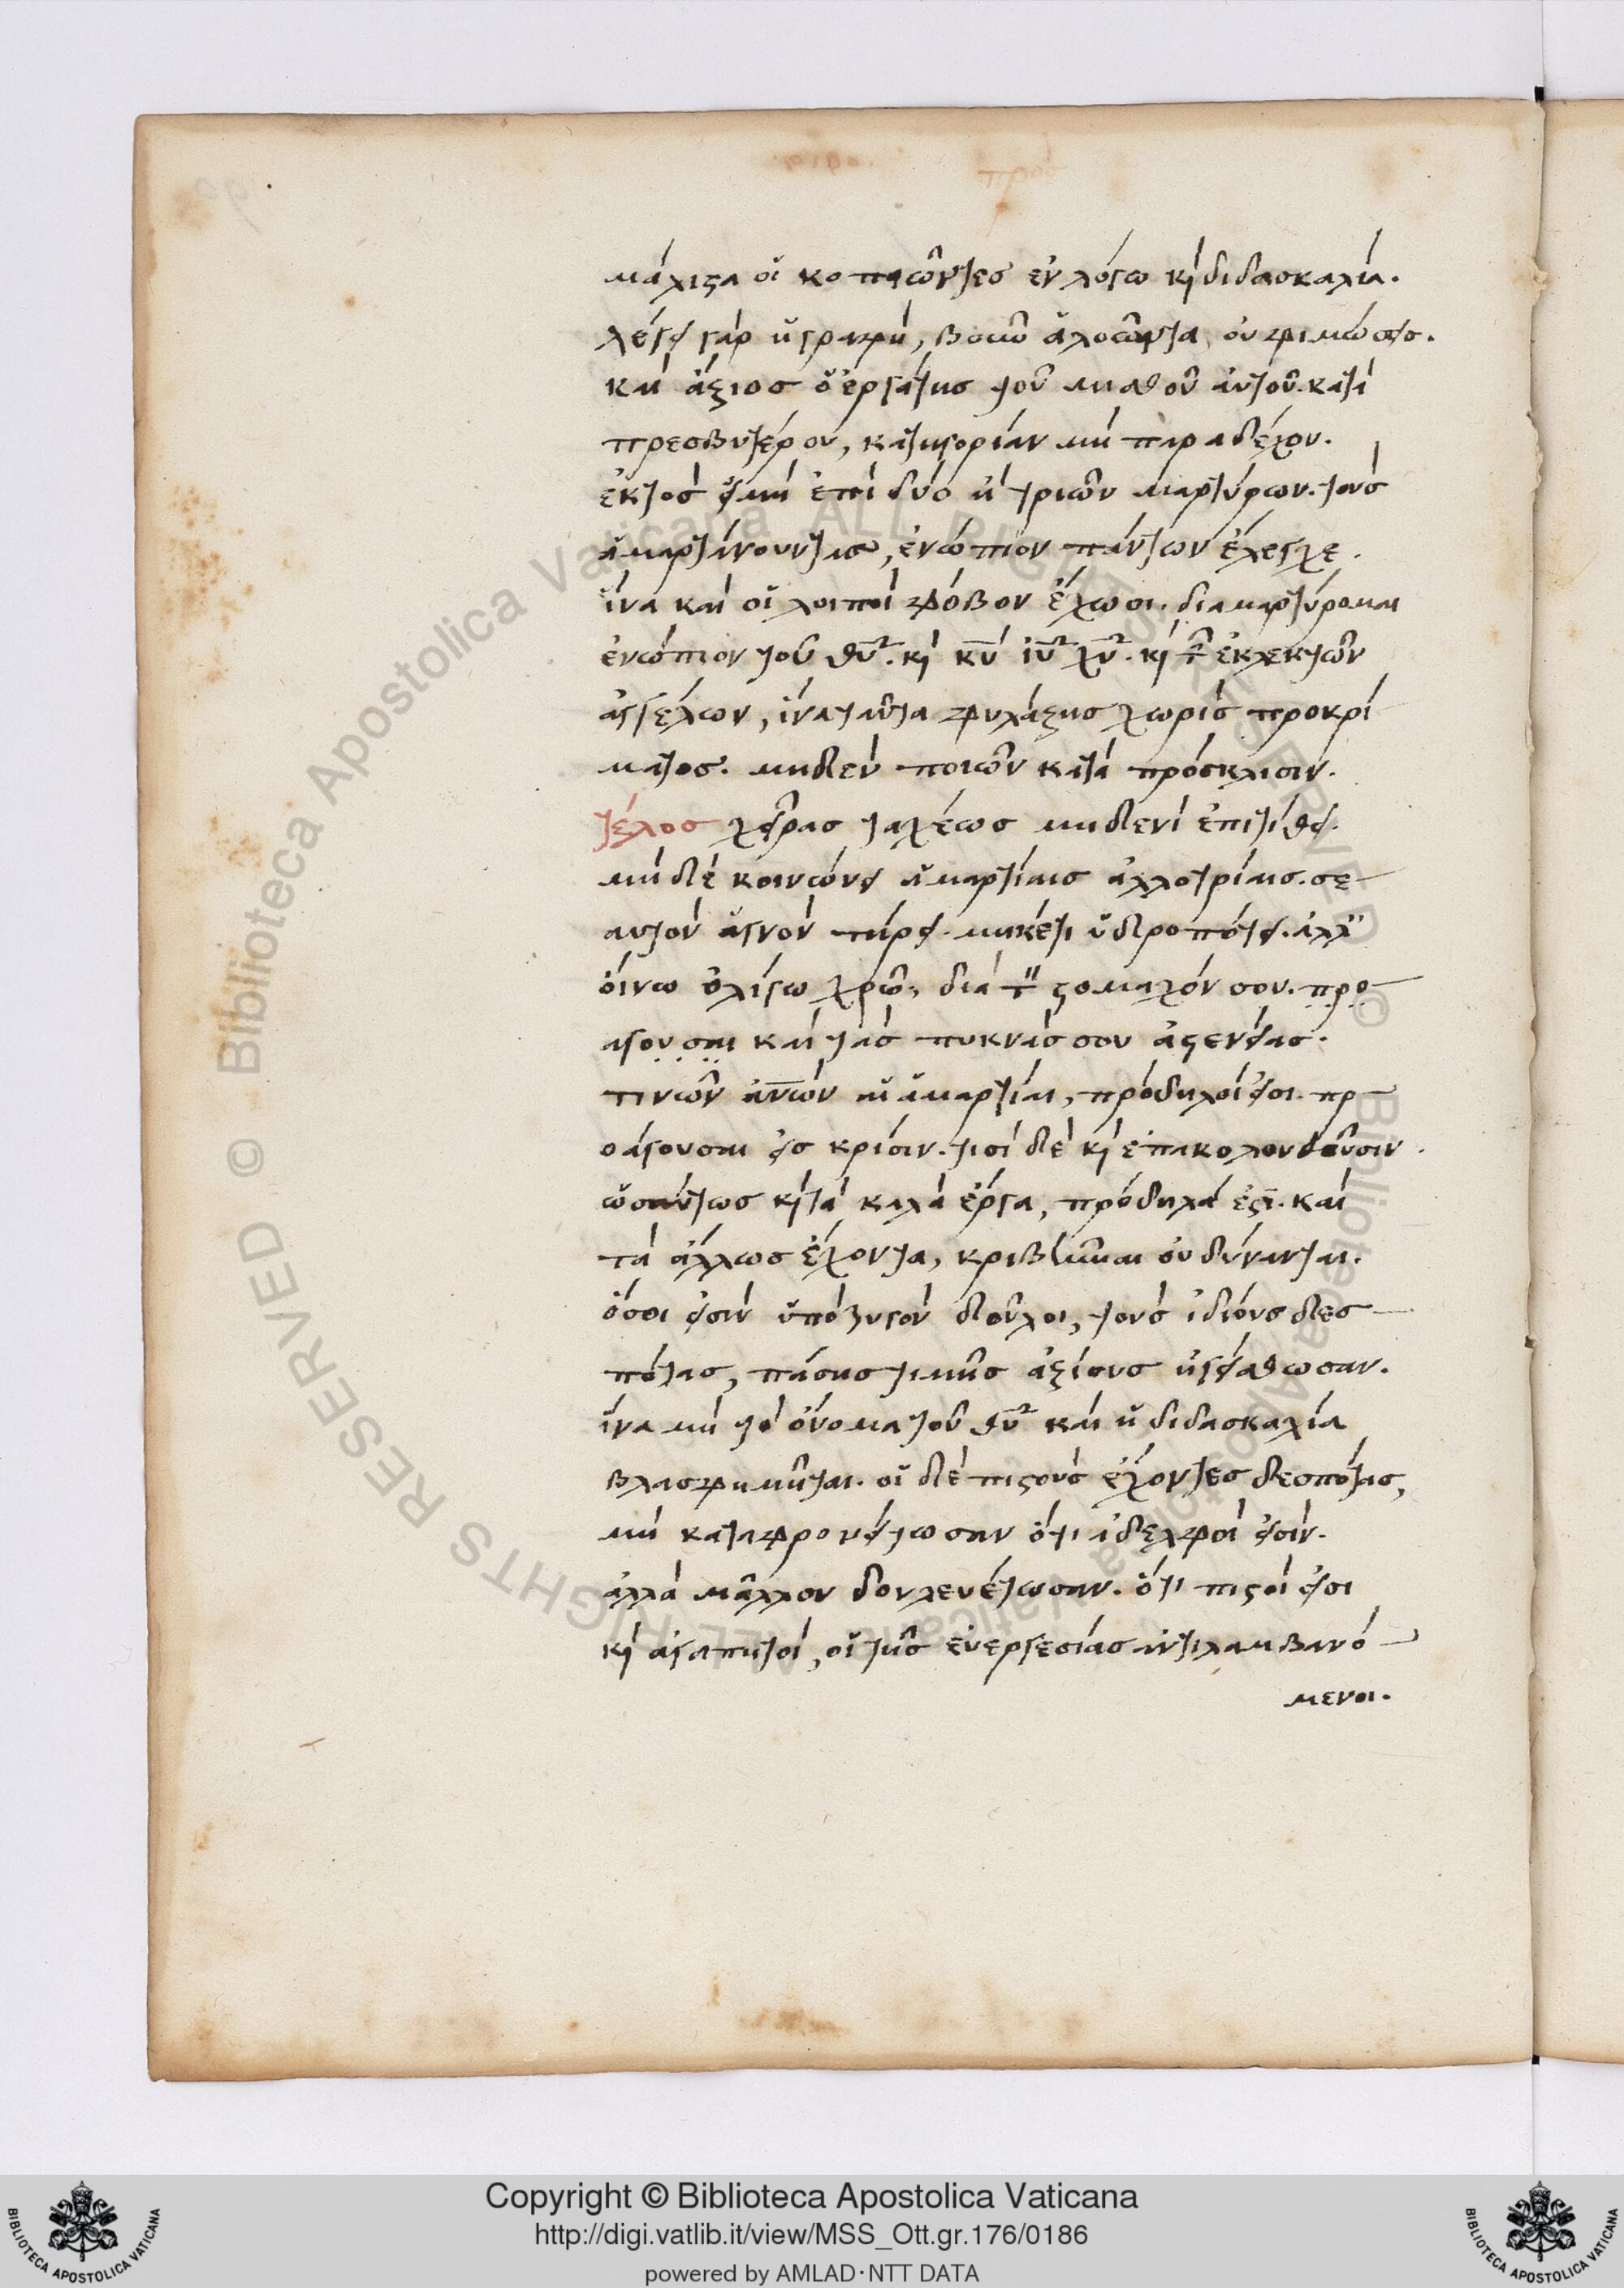 μάλιστα οἱ κοπιῶντες ἐν λόγω κ̀ διδασκαλία.
λέγει γὰρ ἡ γραφή, βοῦν ἀλοῶντα, οὐ φιμώσεις.
καὶ ἄξιος ὁ ἐργάτης τοῦ μισθοῦ αὐτοῦ. κατὰ
πρεσβυτέρου, κατηγορίαν μὴ παραδέχου.
ἐκτὸς εἰμὴ ἐπὶ δύο ἢ τριῶν μαρτύρων. τοὺς
ἁμαρτάνοντας, ἐνώπιον πάντων ἔλεγχε.
ἵνα καὶ οἱ λοιποὶ φόβον ἔχωσι. διαμαρτύρομαι
ἐνώπιον τοῦ θυ̅. κ̀ κυ̅ ιυ̅ χυ̅. κ̀ τ̅ ἐκλεκτῶν
ἀγγέλων, ἵνα ταῦτα φυλάξης χωρὶς προκρί
ματος. μηδὲν ποιῶν κατὰ πρόσκλισιν.
τέλος χεῖρας ταχέως μηδενὶ ἐπιτίθει.
μὴ δὲ κοινώνει ἁμαρτίαις ἀλλοτρίαις. σε
αυτὸν ἁγνὸν τήρει. μηκέτι ὑδροπότει. ἀλλ'
οἴνω ὀλίγω χρῶ, διὰ τ̅ στομαχόν σου. προ
αγουσαι καὶ τὰς πυκνάς σου ἀσενείας.
τινῶν ἀν̅ων αἱ ἁμαρτίαι, πρόδηλοί εἰσι. πρ
οάγουσαι εἰς κρίσιν. τισὶ δὲ κ̀ ἐπακολουθοῦσιν.
ὡσαύτως κ̀ τὰ καλὰ ἔργα, πρόδηλά ἐστι. καὶ
τὰ ἄλλως ἔχοντα, κριβῆναι οὐ δύνανται.
ὅσοι εἰσὶν ὑπὸ ζυγὸν δοῦλοι, τοὺς ἰδίους δεσ
πότας, πάσης τιμῆς ἀξίους ἡγείσθωσαν.
ἵνα μὴ τὸ ὄνομα τοῦ θυ̅ καὶ ἡ διδασκαλία
βλασφημῆται. οἱ δὲ πιστοὺς ἔχοντες δεσπότας,
μὴ καταφρονείτωσαν ὅτι ἀδελφοί εἰσιν.
ἀλλὰ μᾶλλον δουλευέτωσαν. ὅτι πιστοί εἰσι
κ̀ ἀγαπητοί, οἱ τῆς εὐεργεσίας ἀντιλαμβανό
μενοι.
Copyright © Biblioteca Apostolica Vaticana
http://digi.vatlib.it/view/MSS_Ott.gr.176/0186
powered by AMLAD·NTT DATA